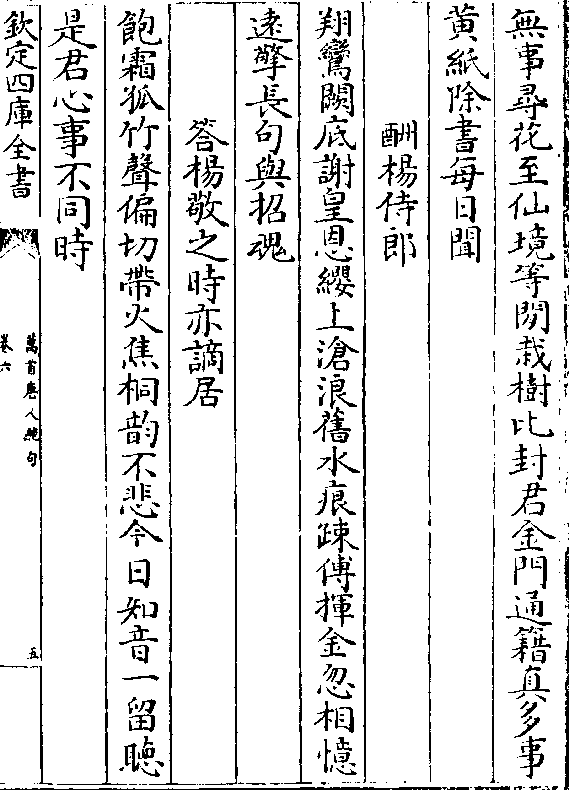 無事尋花至仙境等閒栽樹比封君金門通籍真多事
黄紙除書每日聞
酬楊侍郎
翔鸞闕底謝皇恩纓上滄浪舊水痕踈傅揮金忽相憶
逺擎長句與招魂
答楊敬之時亦謫居
飽霜狐竹聲偏切帶火焦桐韵不悲今日知音一留聴
是君心事不同時
欽定四庫全書
萬首唐人絶句
卷六
五